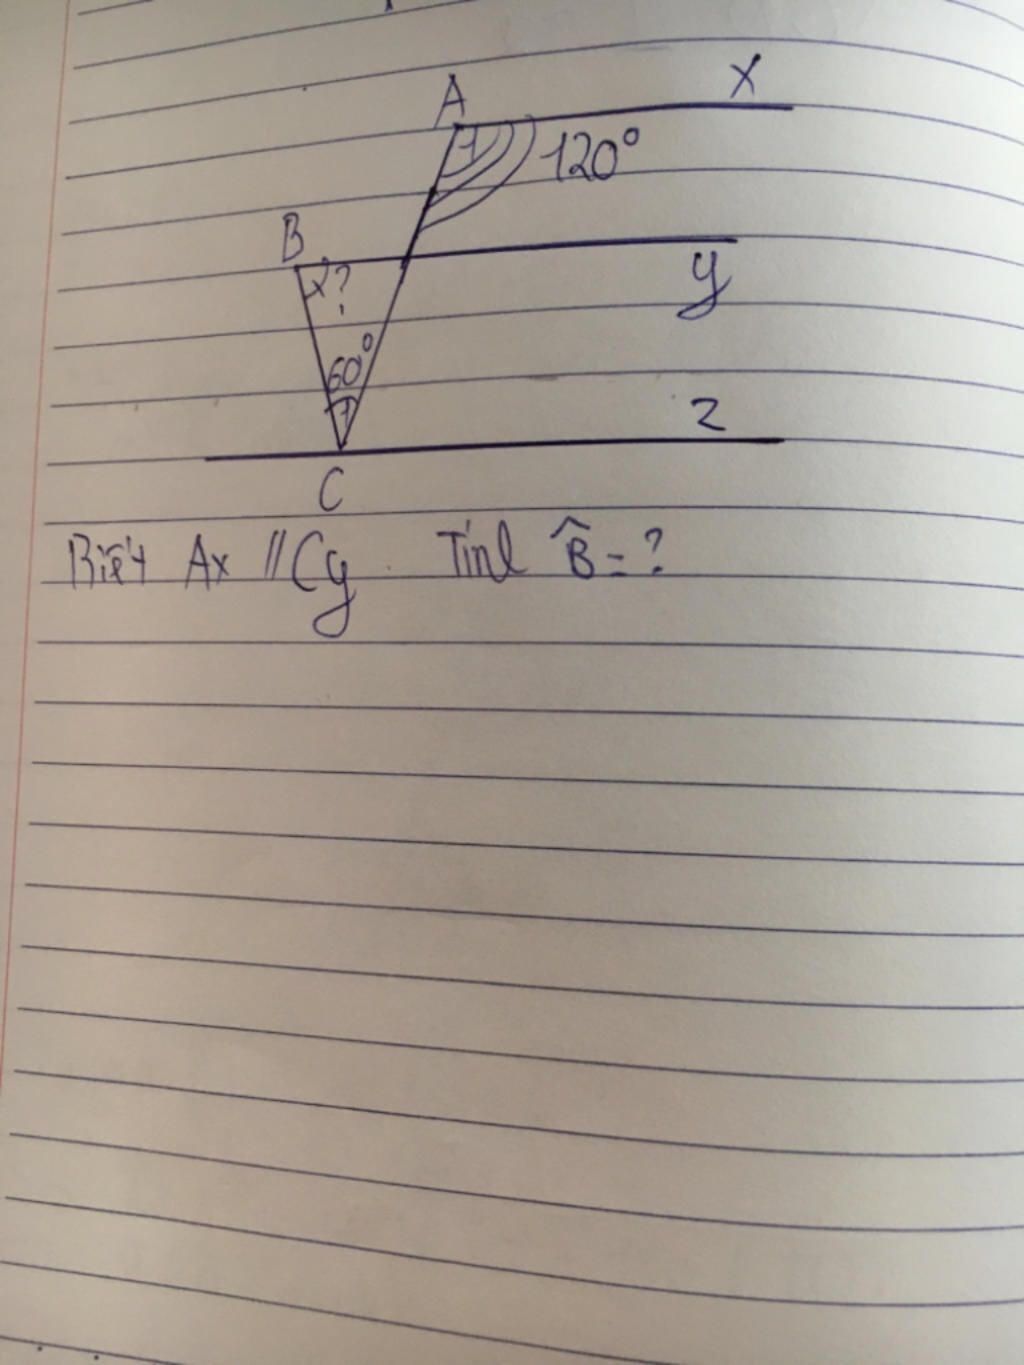 A x
1 120°
B
x? y
60°
1 z
C
Biết Ax // Cy Tính B̂ = ?